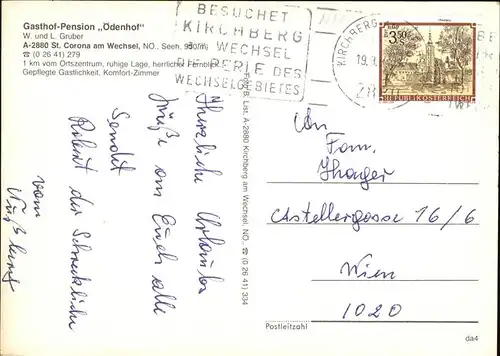 Gasthof-Pension „Ödenhof"
W. und L. Gruber
A-2880 St. Corona am Wechsel, NÖ., Seeh. 950 m
☎ (0 26 41) 279
1 km vom Ortszentrum, ruhige Lage, herrlicher Fernblick
Gepflegte Gastlichkeit, Komfort-Zimmer
BESUCHET
KIRCHBERG
a. WECHSEL
DIE PERLE DES
WECHSELGEBIETES
KIRCHBERG
19.
2880
3.50
REPUBLIK ÖSTERREICH
Foto B. List, A-2880 Kirchberg am Wechsel, NÖ., ☎ (0 26 41) 334
Herzliche Urlaubs
grüße an Euch alle
Sendet
Robert der Schreckliche
vom
An
Fam.
Castellezgasse 16/6
Wien
1020
Postleitzahl
da4